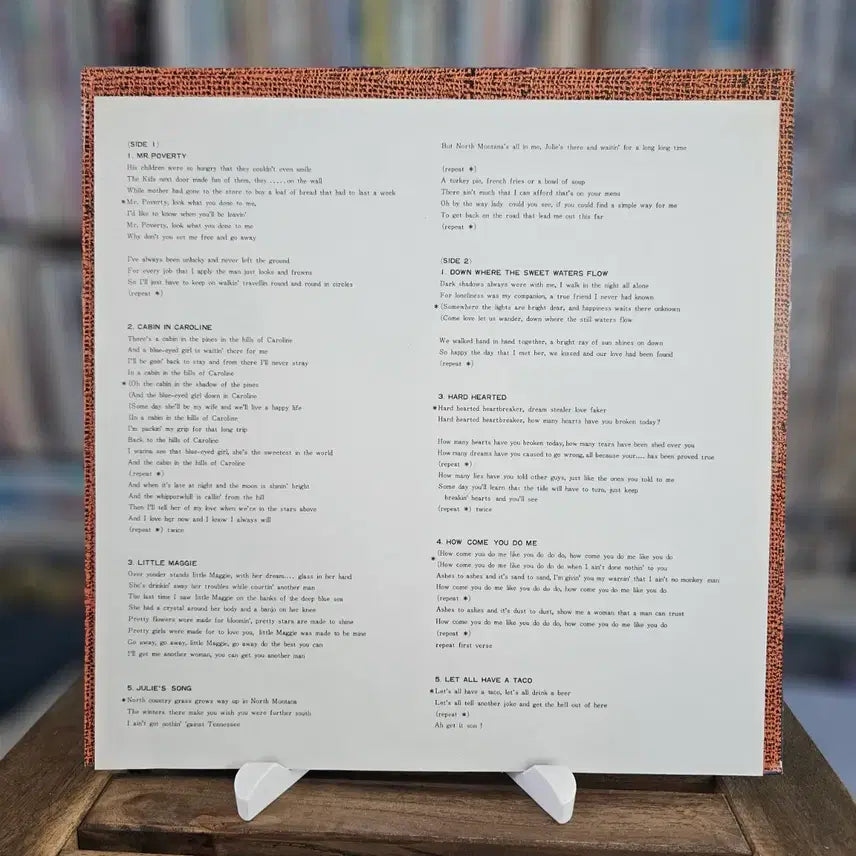 (SIDE 1)
1. MR. POVERTY
His children were so hungry that they couldn't even smile
The Kids next door made fun of them, they ......on the wall
While mother had gone to the store to buy a loaf of bread that had to last a week
*Mr. Poverty, look what you done to me,
I'd like to know when you'll be leavin'
Mr. Poverty, look what you done to me
Why don't you set me free and go away
I've always been unlucky and never left the ground
For every job that I apply the man just looks and frowns
So I'll just have to keep on walkin' travellin round and round in circles
(repeat *)
2. CABIN IN CAROLINE
There's a cabin in the pines in the hills of Caroline
And a blue-eyed girl is waitin' there for me
I'll be goin' back to stay and from there I'll never stray
In a cabin in the hills of Caroline
*(Oh the cabin in the shadow of the pines
(And the blue-eyed girl down in Caroline
(Some day she'll be my wife and we'll live a happy life
(In a cabin in the hills of Caroline
I'm packin' my grip for that long trip
Back to the hills of Caroline
I wanna see that blue-eyed girl, she's the sweetest in the world
And the cabin in the hills of Caroline
(repeat *)
And when it's late at night and the moon is shinin' bright
And the whipporwhill is callin' from the hill
Then I'll tell her of my love when we're in the stars above
And I love her now and I know I always will
(repeat *) twice
3. LITTLE MAGGIE
Over yonder stands little Maggie, with her dream.... glass in her hand
She's drinkin' away her troubles while courtin' another man
The last time I saw little Maggie on the banks of the deep blue sea
She had a crystal around her body and a banjo on her knee
Pretty flowers were made for bloomin', pretty stars are made to shine
Pretty girls were made for to love you, little Maggie was made to be mine
Go away, go away, little Maggie, go away do the best you can
I'll get me another woman, you can get you another man
5. JULIE'S SONG
*North country grass grows way up in North Montana
The winters there make you wish you were further south
I ain't got nothin' 'gainst Tennessee
But North Montana's all in me, Julie's there and waitin' for a long long time
(repeat *)
A turkey pie, french fries or a bowl of soup
There ain't much that I can afford that's on your menu
Oh by the way lady could you see, if you could find a simple way for me
To get back on the road that lead me out this far
(repeat *)
(SIDE 2)
1. DOWN WHERE THE SWEET WATERS FLOW
Dark shadows always were with me, I walk in the night all alone
For loneliness was my companion, a true friend I never had known
*(Somewhere the lights are bright dear, and happiness waits there unknown
(Come love let us wander, down where the still waters flow
We walked hand in hand together, a bright ray of sun shines on down
So happy the day that I met her, we kissed and our love had been found
(repeat *)
3. HARD HEARTED
*Hard hearted heartbreaker, dream stealer love faker
Hard hearted heartbreaker, how many hearts have you broken today?
How many hearts have you broken today, how many tears have been shed over you
How many dreams have you caused to go wrong, all because your.... has been proved true
(repeat *)
How many lies have you told other guys, just like the ones you told to me
Some day you'll learn that the tide will have to turn, just keep
breakin' hearts and you'll see
(repeat *) twice
4. HOW COME YOU DO ME
*(How come you do me like you do do do, how come you do me like you do
(How come you do me like you do do do when I ain't done nothin' to you
Ashes to ashes and it's sand to sand, I'm givin' you my warnin' that I ain't no monkey man
How come you do me like you do do do, how come you do me like you do
(repeat *)
Ashes to ashes and it's dust to dust, show me a woman that a man can trust
How come you do me like you do do do, how come you do me like you do
(repeat *)
repeat first verse
5. LET ALL HAVE A TACO
*Let's all have a taco, let's all drink a beer
Let's all tell another joke and get the hell out of here
(repeat *)
Ah get it son !